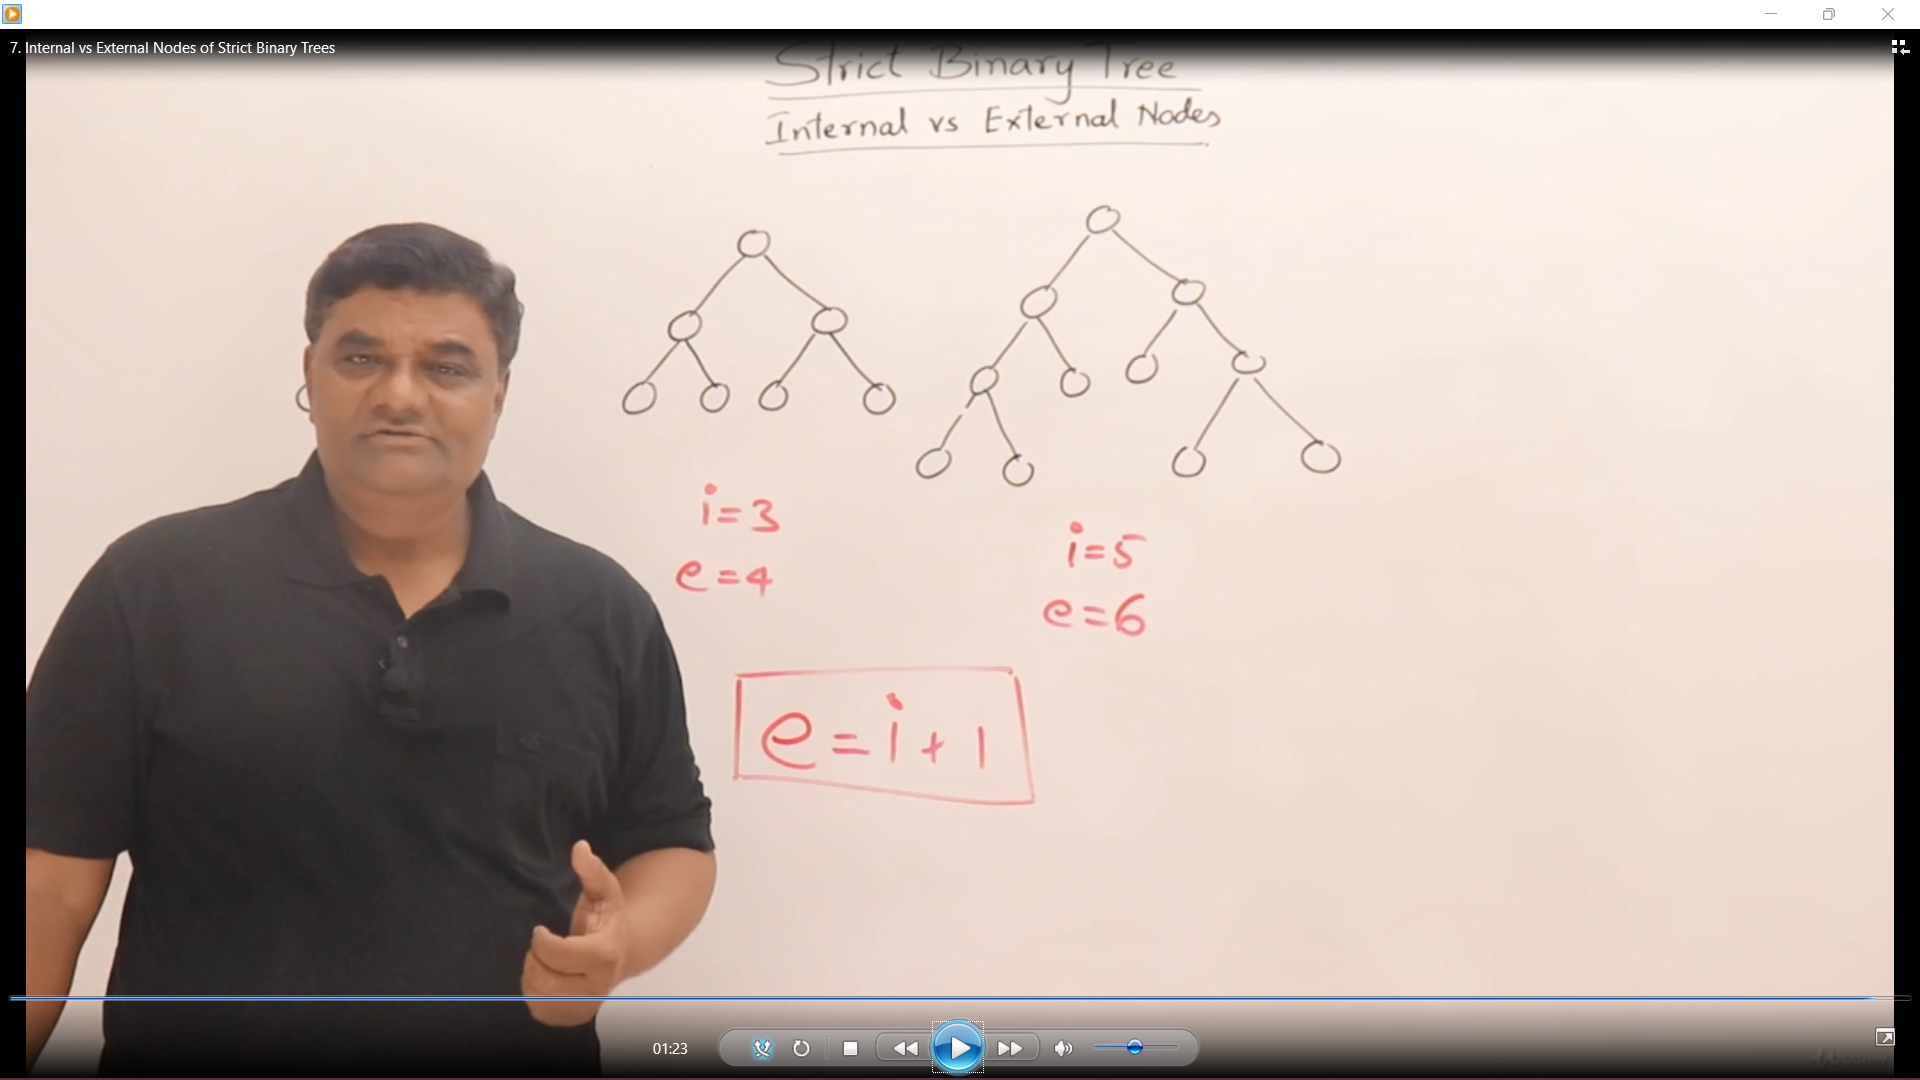 7. Internal vs External Nodes of Strict Binary Trees
Strict Binary Tree
Internal vs External Nodes
i=3
e=4
i=5
e=6
e=i+1
01:23